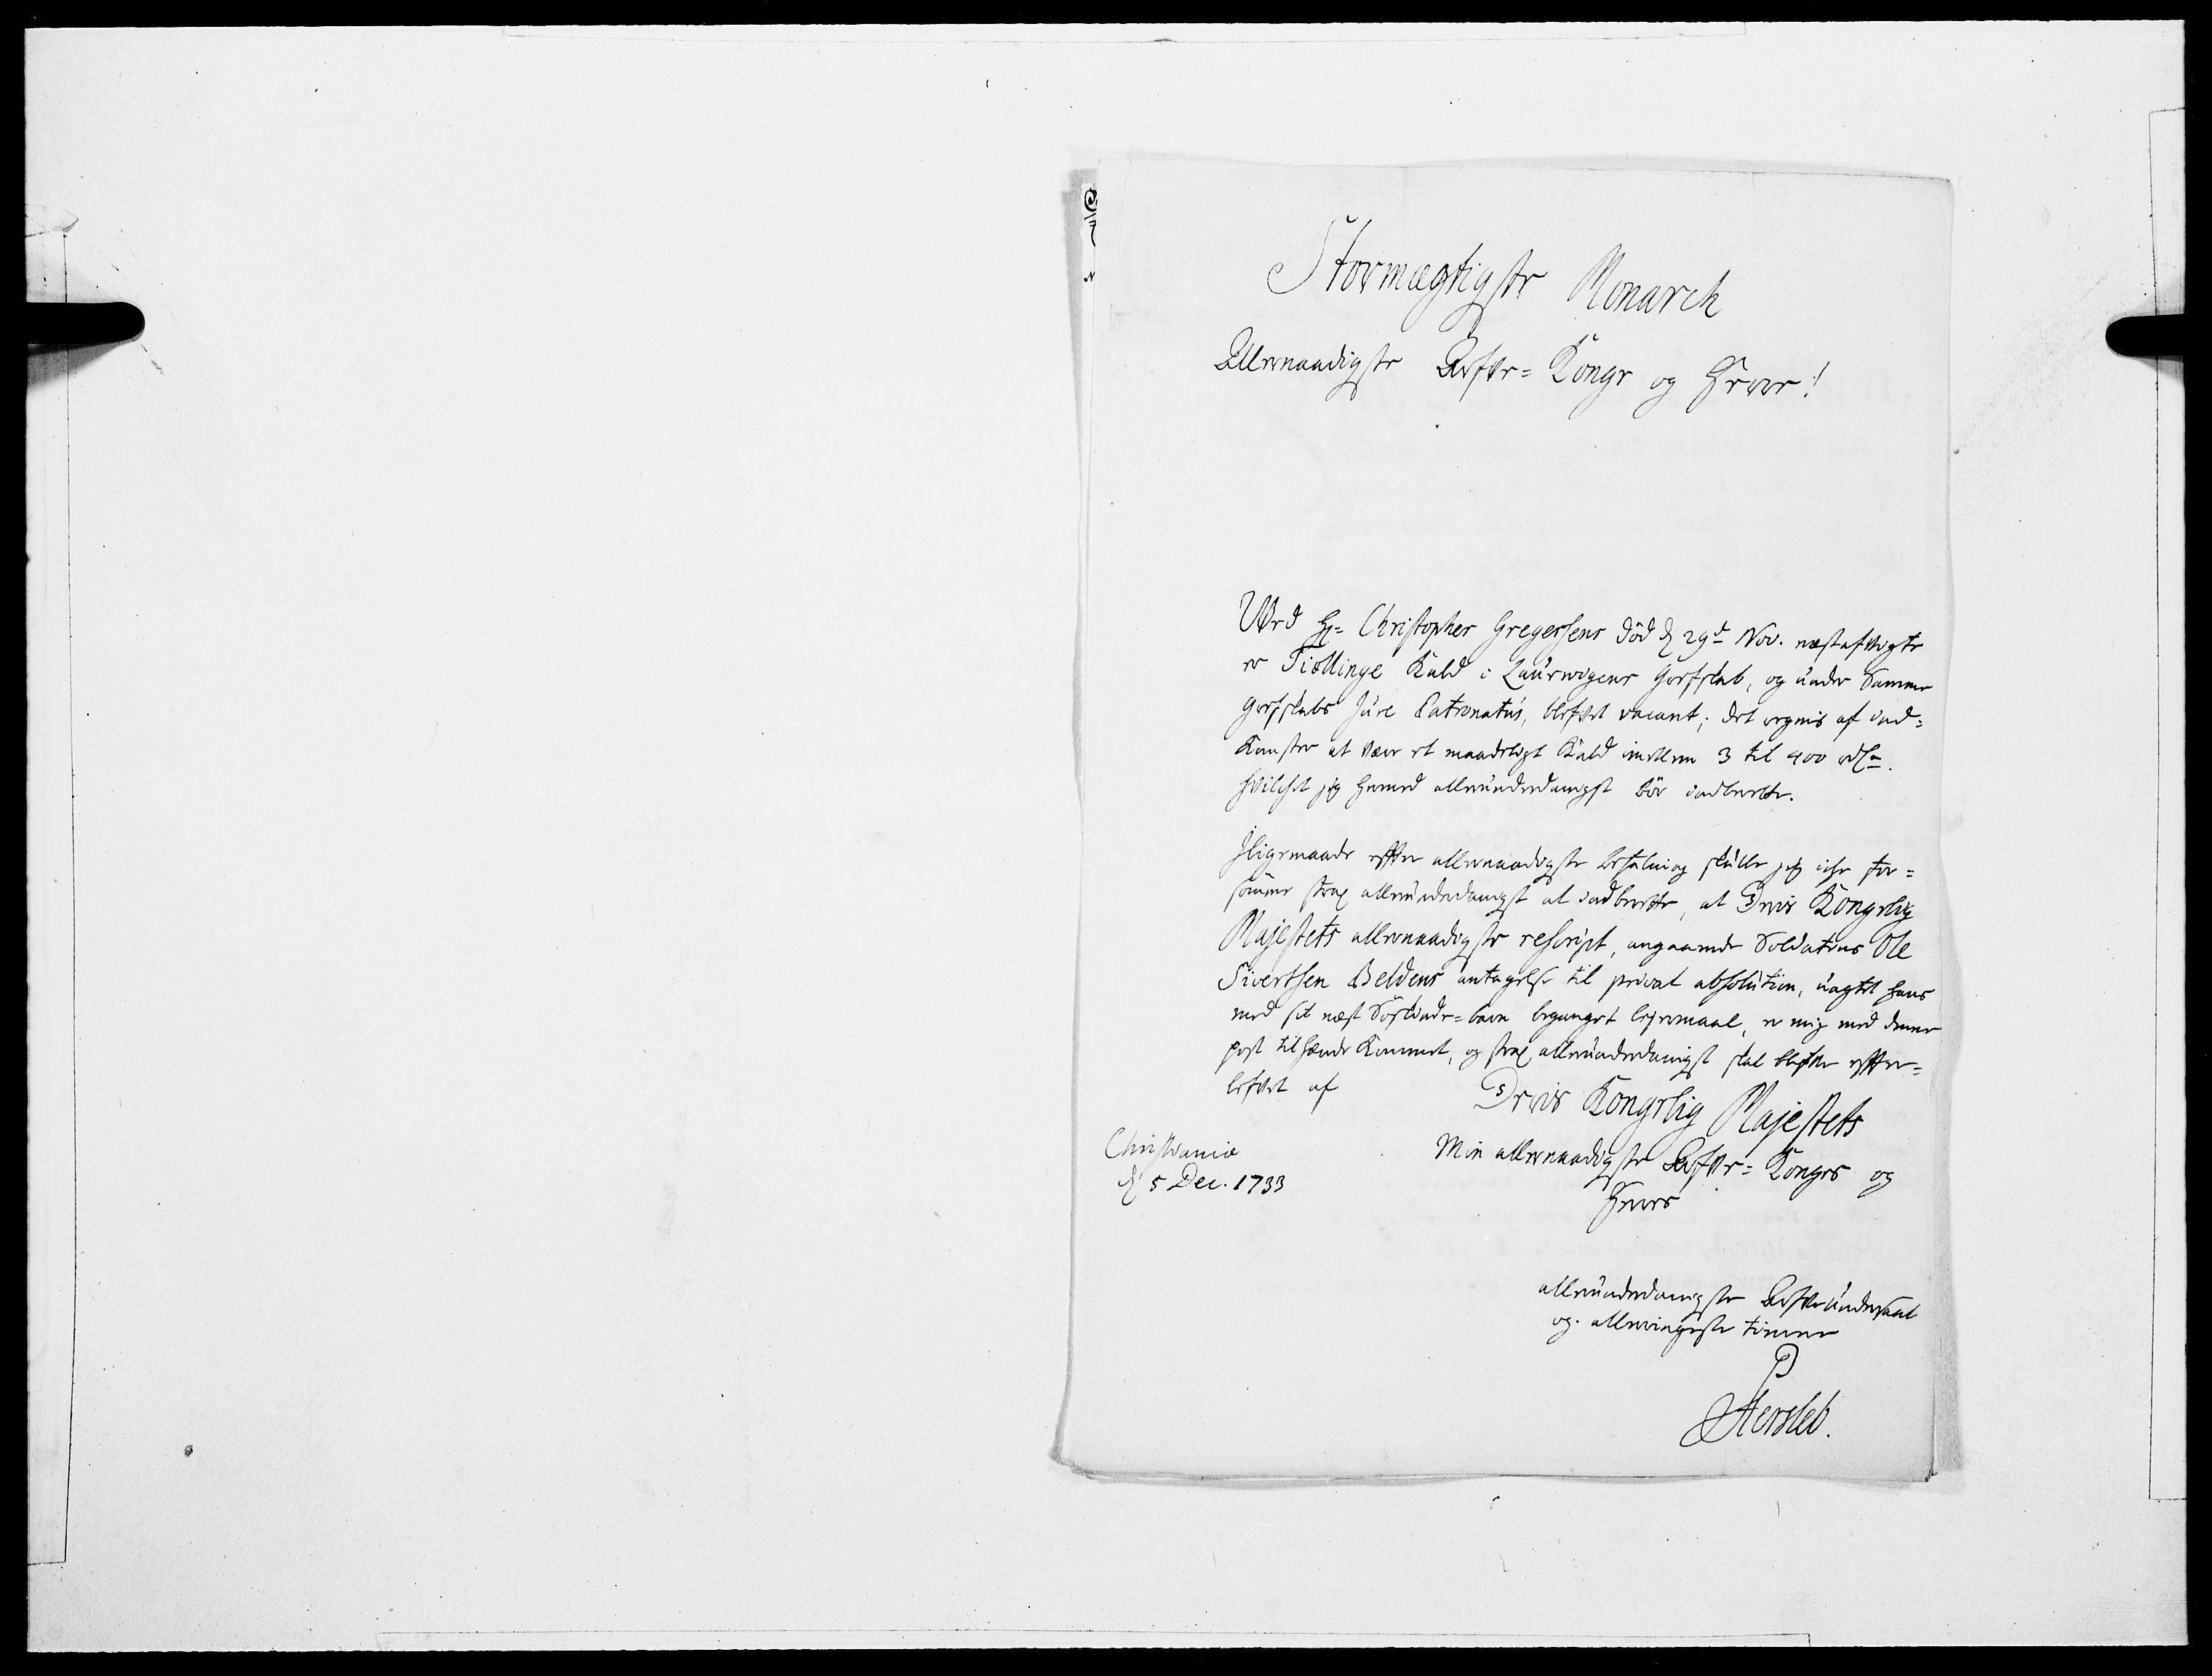 Stormægtigste Monarch
Allernaadigste Arfve= Konge og Herre!
Ved Hr= Christopher Gregersens död d 29de Nov. næstafvigte
er Tiöllinge Kald i Laurwigens Grefskab, og under Samme
Grefskabs Jure Patronatûs, blefvet vacant; det regnis af ind=
Komster at være et maadeligt Kald imellem 3 til 400 rdlr.
hvilchet jeg hermed allerunderdanigst bör indberette.
Jligemaade efter allernaadigste befalning skulle jeg iche for=
sömme strax allerunderdanigst at indberette, at Deris Kongelig
Majestets allernaadigste rescript, angaaende Soldatens Ole
Sivertsen Beldens antagelse til privat absolution, uagtet hans
med sit næst Söskende=barn beganget lejermaal, er mig med denne
post tilhænde Kommet, og strax allerunderdanigst skal blifve efter=
lefvet af
Deris Kongelig Majestets
Min allernaadigste Arfve= Konges og
Herres
Christiania
d 5 Dec. 1733
allerunderdanigste Arfveundersaat
og allerringeste tienere
P
Hersleb.